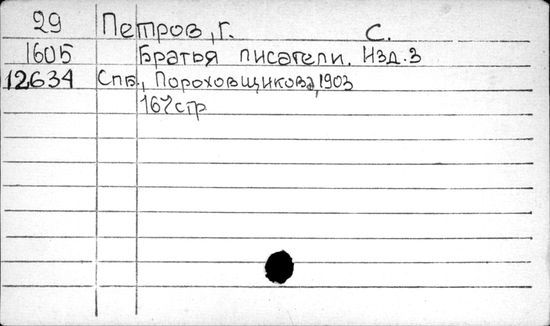 29 Петров, г. С.
1605 Братья писатели. Изд. 3
12634 Спб., Пороховщикова, 1903
167 стр